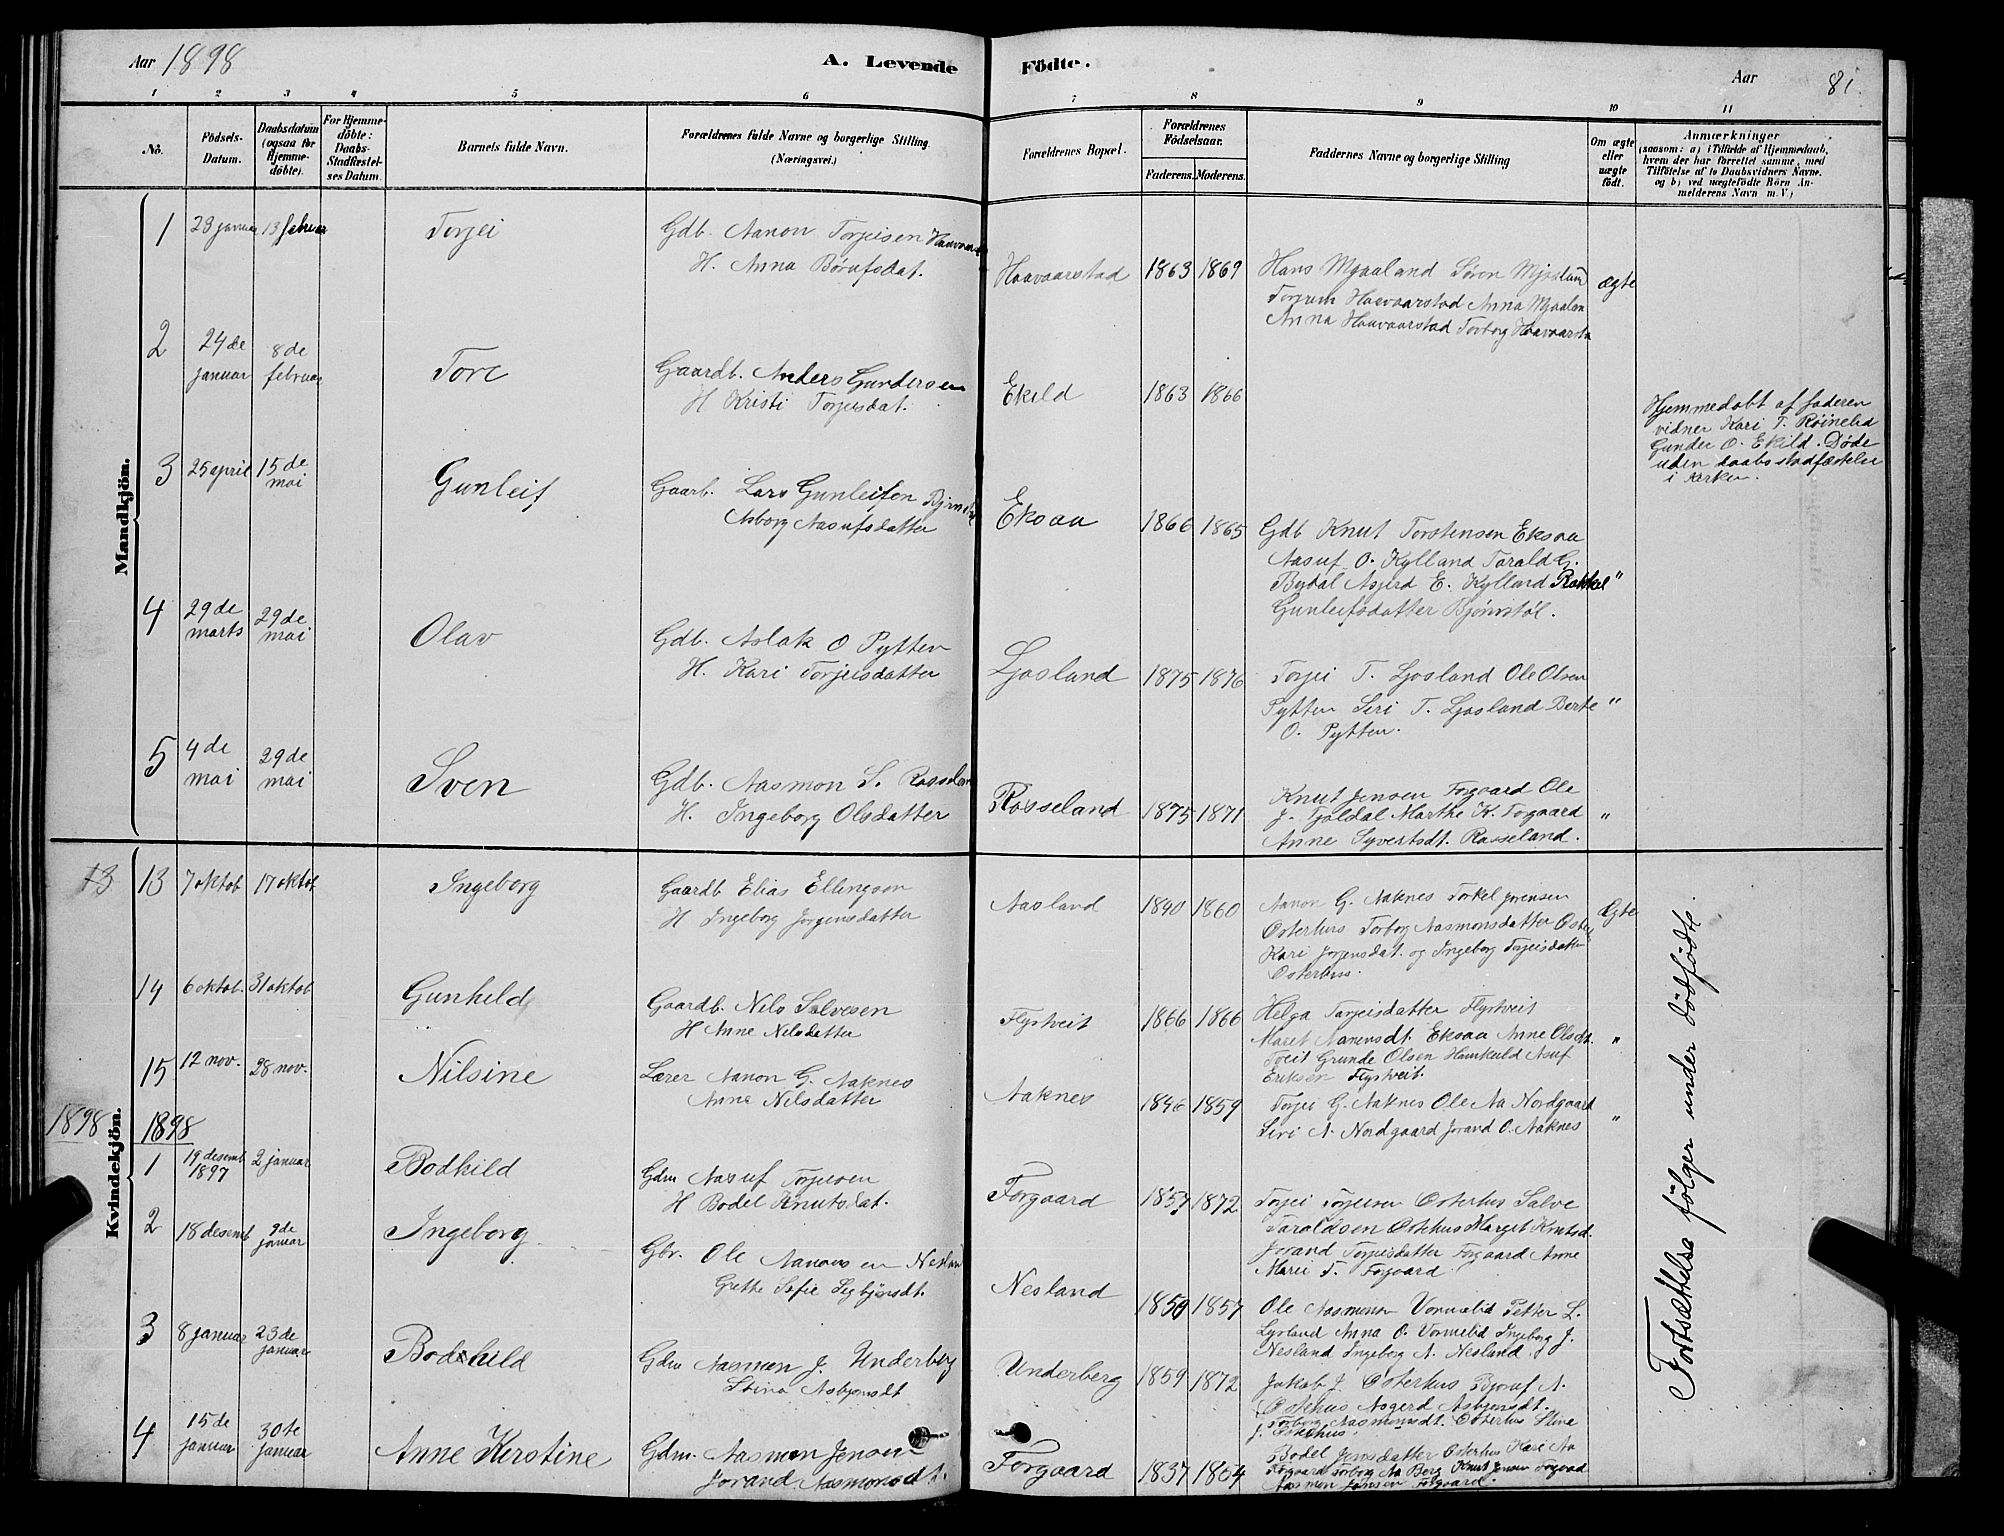 Aar 1898
A. Levende Födte.
Aar
81.
1 2 3 4 5 6 7 8 9 10 11
No.
Födsels-Datum.
Daabsdatum (ogsaa for Hjemme-döbte).
For Hjemme-döbte: Daabs-Stadfæstel-ses Datum.
Barnets fulde Navn.
Forældrenes fulde Navne og borgerlige Stilling (Næringsvei.)
Forældrenes Bopæl.
Forældrenes Födselsaar.
Faderens. Moderens.
Faddernes Navne og borgerlige Stilling
Om ægte eller uægte födt.
Anmærkninger
(saasom: a) i Tilfælde af Hjemmedaab,
hvem der har forrettet samme, med
Tilföielse af to Daabsvidners Navne.
og b) ved uægtefödte Börn An-
melderens Navn m. V.)
Mandkjön.
1 23 januar 13 februar Torjei
Gdb. Aanon Torjeisen
H. Anna Børufsdat.
Haavaarstad 1863 1869
Hans Mjaaland Søren
Haavaarstad Anna
Anna Haavaarstad Torborg
ægte
2 24de januar 8de februar Tore
Gaardb. Anders Gundersen
H Kristi Torjeisdat.
Ekild 1863 1866
Hjemmedøbt af faderen
vidner Kari T. Røinelid
Gunder O. Ekild. Døde
uden daabsstadfæstelse
i kirken.
3 25 april 15de mai Gunleif
Gaarb. Lars Gunleifsen
Asborg Aasufsdatter
Eksaa 1866 1865
Gdb Knut Torstensen Eksaa
Aasuf O. Kylland Tarald G.
Bydal Asjerd E. Kylland Rakkel "
Gunleifsdatter Bjørnstøl.
4 29de marts 29de mai Olav
Gdb. Aslak O Pytten
H. Kari Torjeisdatter
Ljosland 1875 1876
Torjei T. Ljosland Ole Olsen
Pytten Siri T. Ljosland Berte "
O. Pytten.
5 4de mai 29de mai Sven
Gdb. Aasmon S. Rosseland
H. Ingeborg Olsdatter
Rosseland 1875 1871
Knut Jensen Forgaard Ole
J. Fjaldal Marthe K. Forgaard "
Anne Syvertsdt. Rosseland.
Kvindekjön.
13
13 7 oktob 17 oktob Ingeborg
Gaardb Elias Ellingsen
H Ingeborg Jorgensdatter
Aasland 1840 1860
Aanon G. Aaknes Torkel
Osterhus Torborg Aasmonsdatter
Kari Jorgensdat. og Ingeborg Torjeisdatter
Osterhus.
Ægte
14 6 oktob. 31 oktob Gunhild
Gaardb. Nils Salvesen
H Anne Nilsdatter
Flystveit 1866 1866
Helga Tarjeisdatter Flystveit
Maret Eksaa Anne Olsdt. "
Tveit Grunde Olsen Asuf
Eriksen Flystveit.
15 12 nov. 28 nov. Nilsine
Lærer Aanon G. Aaknes
Anna Nilsdatter
Aaknes 1846 1859
Torjei G. Aaknes Ole Aa Nordgaard
Siri A. Nordgaard Jorand O. Aaknes "
1898 1898
1 19 desemb 1897 2 januar Bodhild
Gdm Aasuf Torjusen
H Bodel Knutsdat.
Forgaard 1857 1872
Torjei Torjusen Osterhus Salve
Taraldsen Osterhus Marget Kntsd.
Jorand Torjeisdatter Forgaard Anne
Marie T. Forgaard
2 18 desemb 9de januar Ingeborg
Gbr. Ole Aanonsen
Grethe Sofie Sigbjønsdt.
Nesland 1850 1857
Ole Aasmunsn Vormelid Petter L.
Lysland Anna O. Vormelid Ingeborg J.
Nesland Ingeborg A. Nesland.
3 8 januar 23de januar Bodhild
Gdm Aasmon J. Underberg
Stina Asbjonsdt
Underberg 1859 1872
Jakob J. Osterhus Bjoruf A.
Osterhus Asgerd Asbjønsdt.
Torborg Aasmonsdt. Osterhus Stine
J. Osterhus.
4 15de januar 30te januar Anne Kirstine
Gdm. Aasmon Jensen
Jorand Aasmonsdt.
Forgaard 1837 1854
Bodel Jensdatter Osterhus Kari Aa
Forgaard Torborg Aa Berg Knut Jensen Forgaard
Aasmon Jensen Forgaard.
Fortsættelse følger under dødfødte.